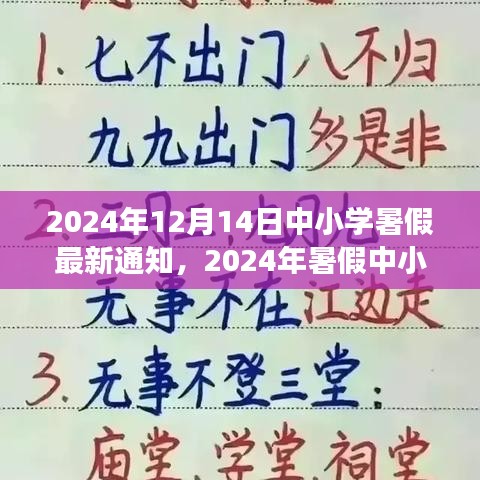 1. 七不出门八不归
九九出门多是非
2024年12月14日中小学暑假
最新通知，2024年暑假中小
无事不在江边走
3. 无事不登三堂：
庙堂，学堂，祠堂